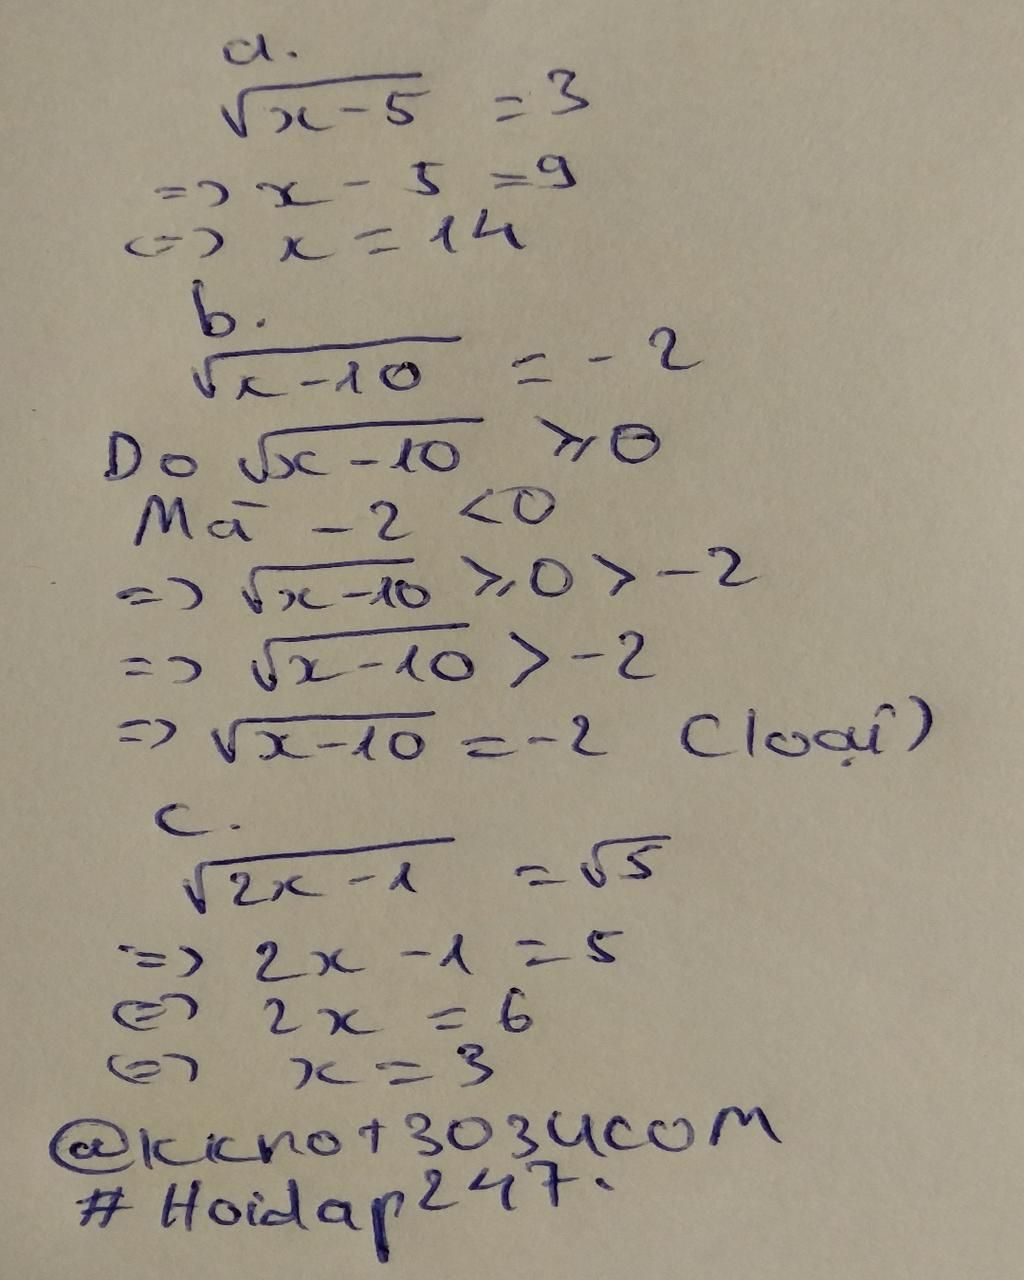 a.
√x-5 = 3
=> x - 5 = 9
<=> x = 14
b.
√x-10 = -2
Do √x-10 ⩾ 0
Mà -2 < 0
=> √x-10 ⩾ 0 > -2
=> √x-10 > -2
=> √x-10 = -2 (loại)
c.
√2x-1 = √5
=> 2x -1 = 5
<=> 2x = 6
<=> x = 3
@kknot3034com
# Hoidap247.